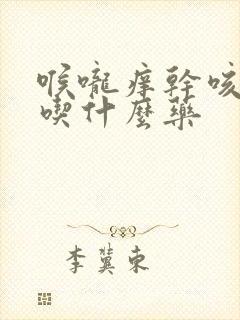 喉嚨痒幹咳
喫什麼藥
李冀東